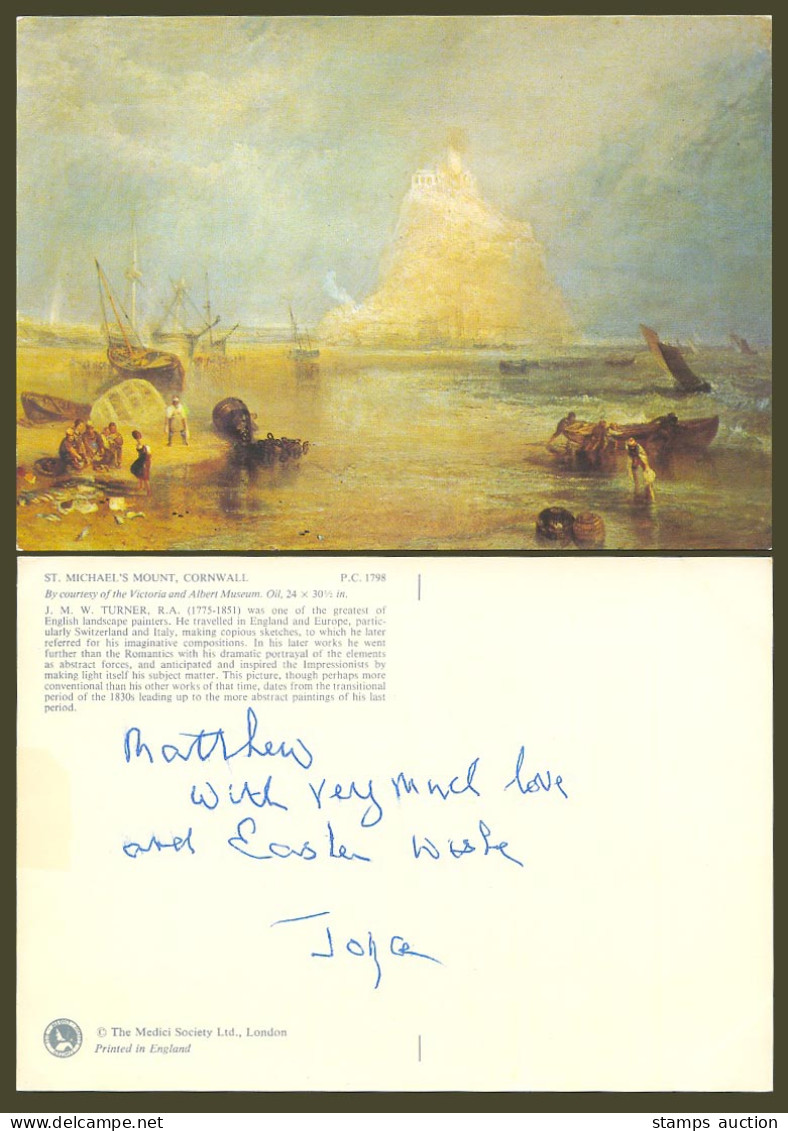 ST. MICHAEL'S MOUNT, CORNWALL P.C. 1798
By courtesy of the Victoria and Albert Museum. Oil, 24 × 30½ in.
J. M. W. TURNER, R.A. (1775-1851) was one of the greatest of
English landscape painters. He travelled in England and Europe, partic-
ularly Switzerland and Italy, making copious sketches, to which he later
referred for his imaginative compositions. In his later works he went
further than the Romantics with his dramatic portrayal of the elements
as abstract forces, and anticipated and inspired the Impressionists by
making light itself his subject matter. This picture, though perhaps more
conventional than his other works of that time, dates from the transitional
period of the 1830s leading up to the more abstract paintings of his last
period.
Matthew
with very much love
and Easter Wishe
Joyce
© The Medici Society Ltd., London
Printed in England
stamps auction